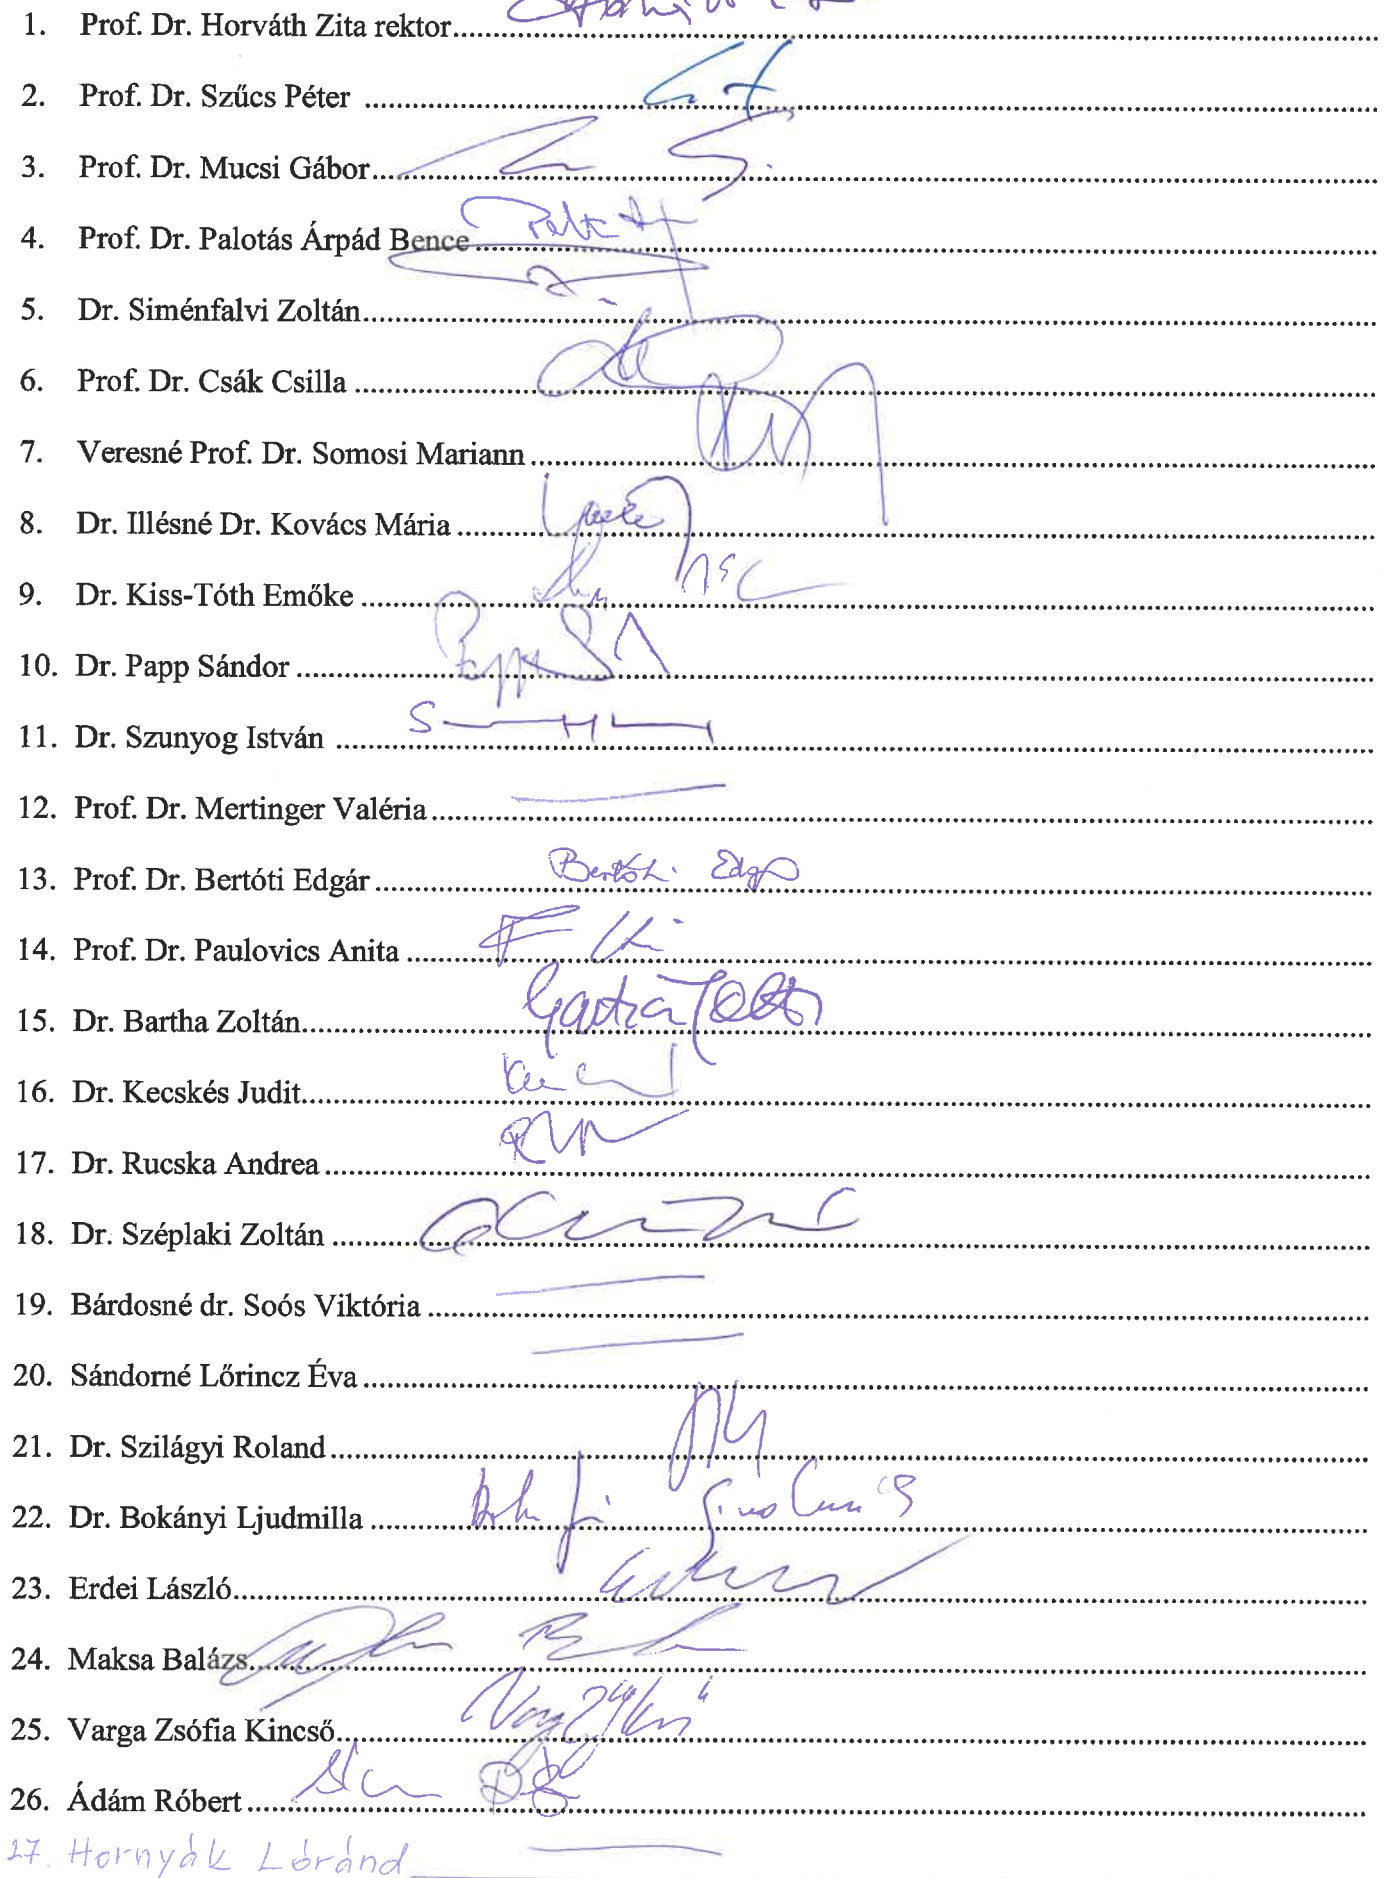 1. Prof. Dr. Horváth Zita rektor
2. Prof. Dr. Szűcs Péter
3. Prof. Dr. Mucsi Gábor
4. Prof. Dr. Palotás Árpád Bence
5. Dr. Siménfalvi Zoltán
6. Prof. Dr. Csák Csilla
7. Veresné Prof. Dr. Somosi Mariann
8. Dr. Illésné Dr. Kovács Mária
9. Dr. Kiss-Tóth Emőke
10. Dr. Papp Sándor
11. Dr. Szunyog István
12. Prof. Dr. Mertinger Valéria
13. Prof. Dr. Bertóti Edgár Bertóti Edgár
14. Prof. Dr. Paulovics Anita
15. Dr. Bartha Zoltán
16. Dr. Kecskés Judit
17. Dr. Rucska Andrea
18. Dr. Széplaki Zoltán
19. Bárdosné dr. Soós Viktória
20. Sándorné Lőrincz Éva
21. Dr. Szilágyi Roland
22. Dr. Bokányi Ljudmilla
23. Erdei László
24. Maksa Balázs
25. Varga Zsófia Kincső
26. Ádám Róbert
27. Hornyák Lóránd